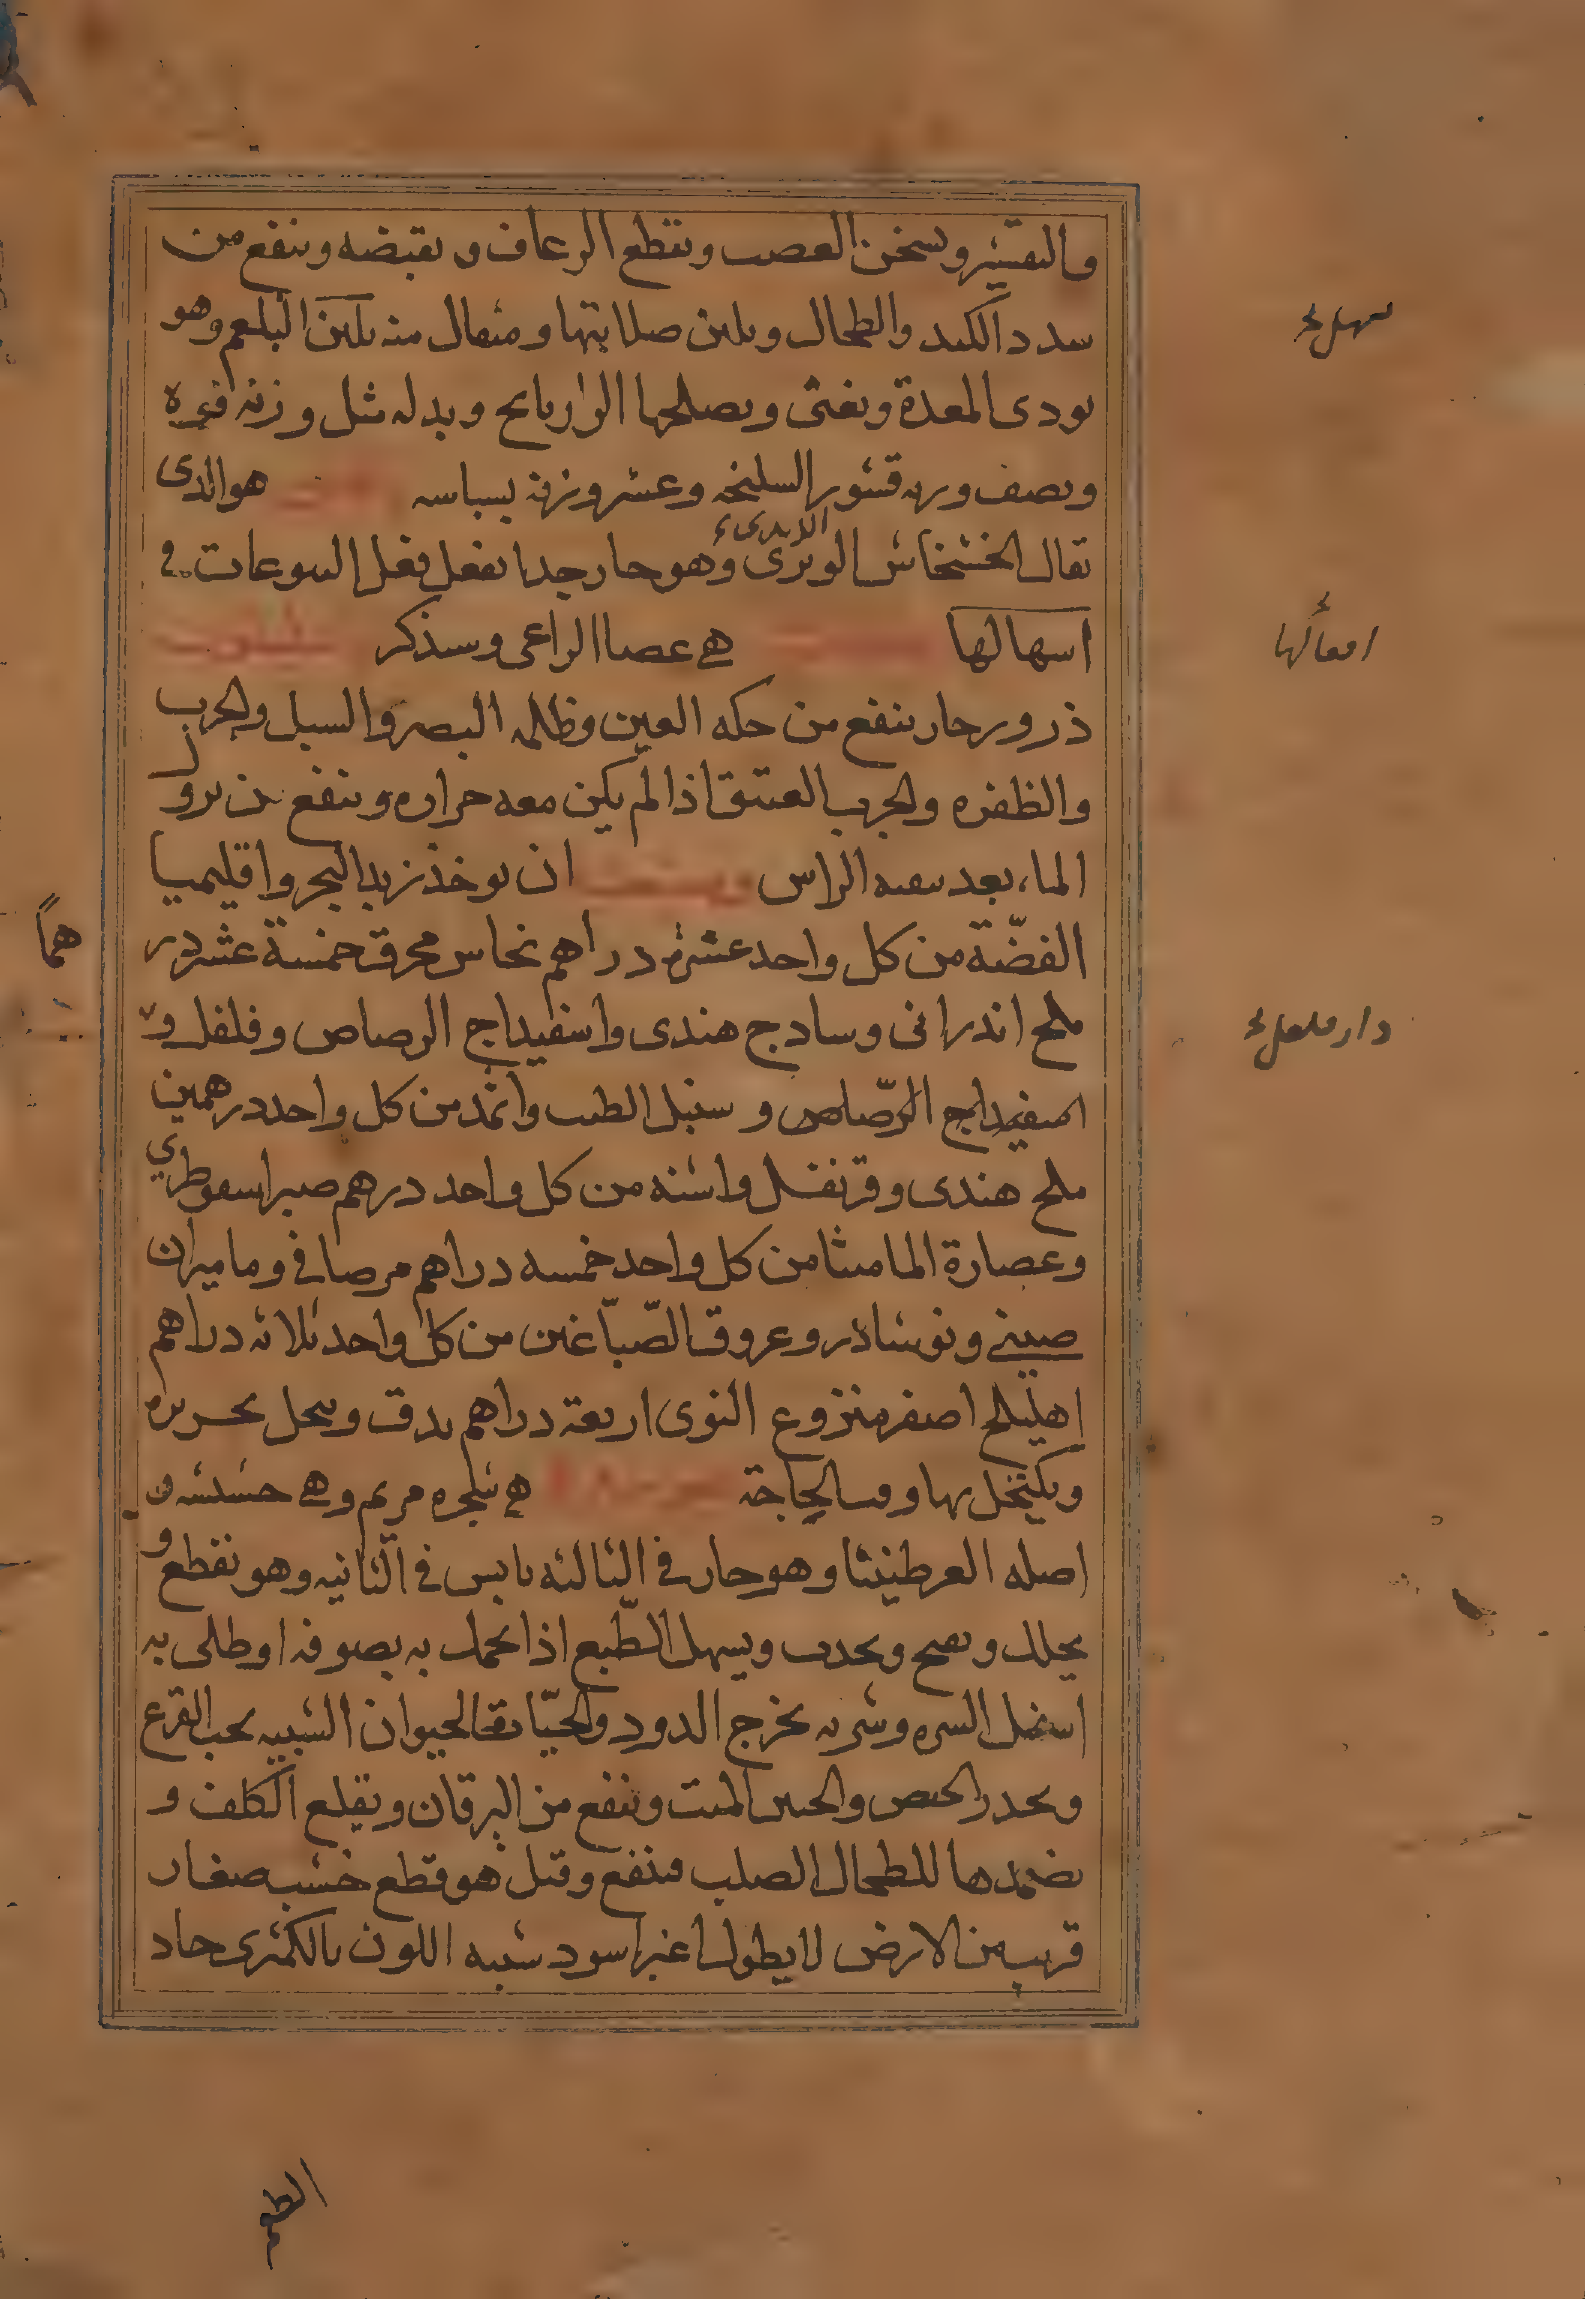 والتقشير ويسخن العصب ويقطع الرعاف و بقبضه وينفع من
سدد الكبد والطحال ويلين صلابتها ومثقال منه يلين البلغم وهو
يودى المعدة ويغثى ويصلحها الرازيانج وبدله مثل وزنه قوة
ونصف وزنه قشور السليخه وعشر وزنه بسباسه هو الذى
يقال الخشخاش الوبرى وهو حار جدا يفعل فعل اليتوعات فى
اسهالها هى عصا الراعى وسنذكر
ذرور حار ينفع من حكه العين وظلمه البصر والسبل والجرب
والظفره والجرب العتيق اذا لم يكن معه حراره وينفع من نزول
الماء بعد تنقيه الراس ان يوخذ زبد البحر واقليميا
الفضّة من كل واحد عشرة دراهم نحاس محرق خمسة عشر در
هماً
ملح اندرانى وسادج هندى واسفيداج الرصاص وفلفل و
اسفيداج الرّصاص و سنبل الطيب واثمد من كل واحد درهمين
ملح هندى وقرنفل واشنه من كل واحد درهم صبر اسقوطري
وعصارة الماميثا من كل واحد خمسه دراهم مر صافى وماميران
صينى ونوشاذر وعروق الصّبّاغين من كل واحد ثلاثه دراهم
اهليلج اصفر منزوع النوى اربعة دراهم يدق وينخل بحريره
ويكتحل بها وقت الحاجة هى شجره مريم وهى حشيشه و
اصله العرطنيثا وهو حار فى الثالثه يابس فى الثّانيه وهو يقطع و
يحلل ويفتح ويجذب ويسهل الطّبع اذا تحمل به بصوفه او طلى به
اسفل السره وشربه يخرج الدود والحيّات والحيوان الشبيه بحب القرع
ويحدر الحيض والجنين الميت وينفع من اليرقان ويقلع الكلف و
يضمدها للطحال الصلب فينفع وقيل هو قطع خشب صغار
قريب من الارض لا يطول اغبر اسود شبيه اللون بالكمثرى حاد
يسهل
افعالها
دار فلفل
الطعم